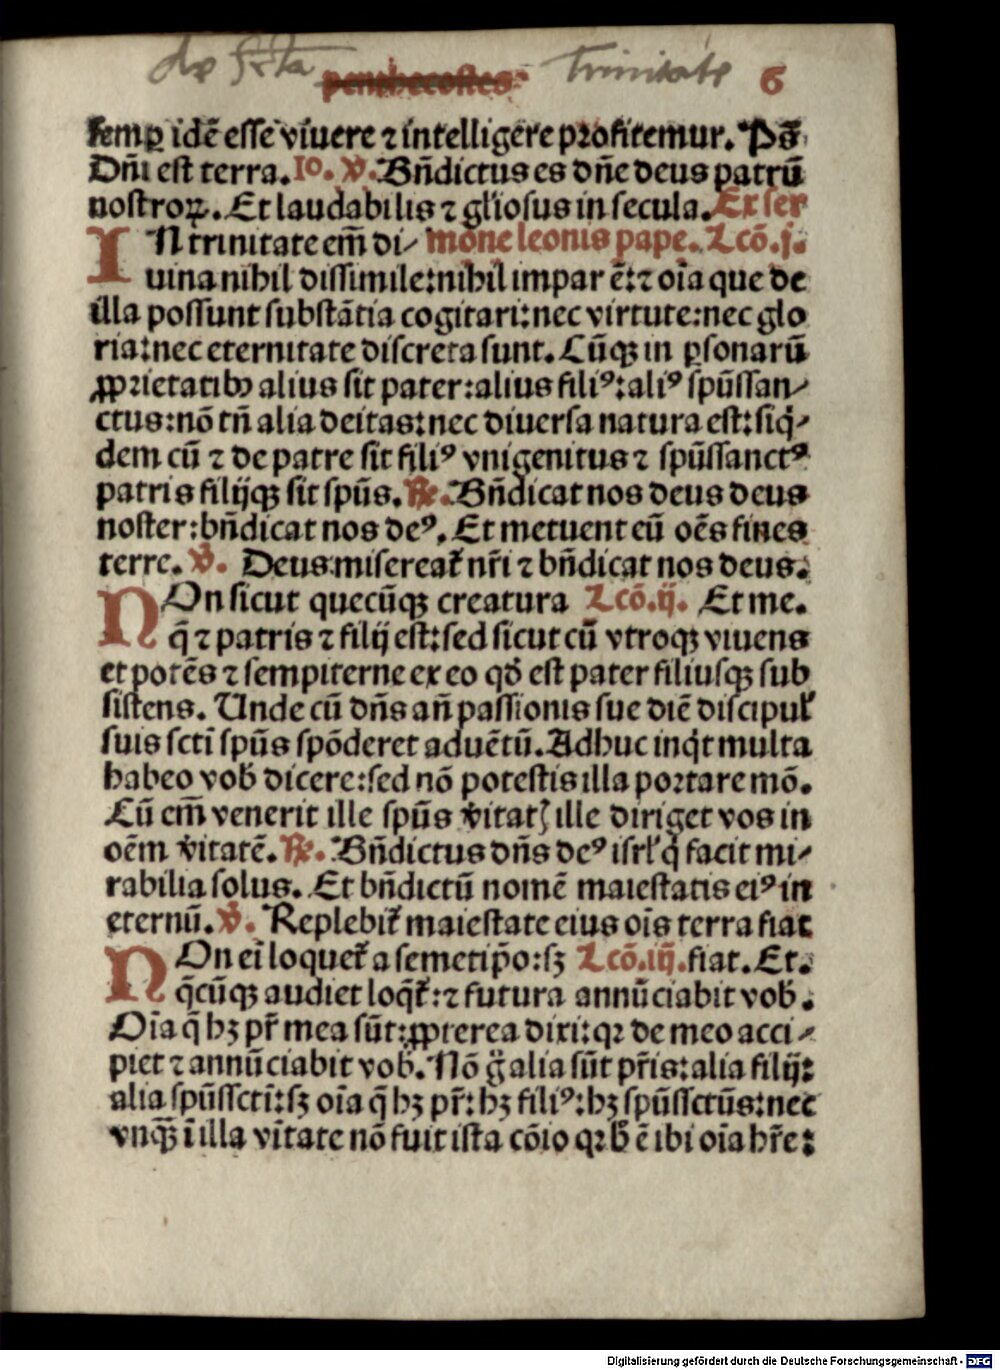 de scta penthecostes Trinitate 6
semꝑ idē esse viuere ⁊ intelligere profitemur. Ps̄
Dn̄i est terra. 10. ℣. Bn̄dictus es dn̄e deus patrū
nostroꝝ. Et laudabilis ⁊ gl̄iosus in secula. Ex ser
IN trinitate em̄ di⸗ mone leonis pape. Lcō.j.
uina nihil dissimile: nihil impar ē: ⁊ oīa que de
illa possunt substātia cogitari: nec virtute: nec glo
ria: nec eternitate discreta sunt. Cūqꝫ in ꝑsonarū
ꝓprietatibꝰ alius sit pater: alius filiꝰ: aliꝰ spūssan⸗
ctus: nō tn̄ alia deitas: nec diuersa natura est: siq̇⸗
dem cū ⁊ de patre sit filiꝰ vnigenitus ⁊ spūssanctꝰ
patris filijqꝫ sit spūs. ℟. Bn̄dicat nos deus deus
noster: bn̄dicat nos deꝰ. Et metuent eū oēs fines
terre. ℣. Deus misereat̄ nr̄i ⁊ bn̄dicat nos deus.
NOn sicut quecūqꝫ creatura Lcō.ij. Et me.
q̄ ⁊ patris ⁊ filij est: sed sicut cū vtroqꝫ viuens
et potēs ⁊ sempiterne ex eo qd̄ est pater filiusqꝫ sub
sistens. Unde cū dn̄s an̄ passionis sue diē discipul̄
suis scti spūs spōderet aduētū. Adhuc inq̇t multa
habeo vob̄ dicere: sed nō potestis illa portare mō.
Cū em̄ venerit ille spūs v̄itatꝭ ille diriget vos in
oēm v̄itatē. ℟. Bn̄dictus dn̄s deꝰ isrl̄ q̇ facit mi⸗
rabilia solus. Et bn̄dictū nomē maiestatis eiꝰ in
eternū. ℣. Replebit̄ maiestate eius oīs terra fiat
NOn ei loquet̄ a semetip̄o: sꝫ Lcō.iij. fiat. Et.
q̄cūqꝫ audiet loq̄t̄: ⁊ futura annūciabit vob̄.
Oīa q̄ hꝫ pr̄ mea sūt: ꝓpterea dixi: qꝛ de meo acci⸗
piet ⁊ annūciabit vob̄. Nō g̊ alia sūt pr̄is: alia filij:
alia spūsscti: sꝫ oīa q̄ hꝫ pr̄: hꝫ filiꝰ: hꝫ spūssctūs: nec
vnqꝫ̄ ī illa v̄itate nō fuit ista cōio qꝛ h̄ ē ibi oīa hr̄e:
Digitalisierung gefördert durch die Deutsche Forschungsgemeinschaft - DFG